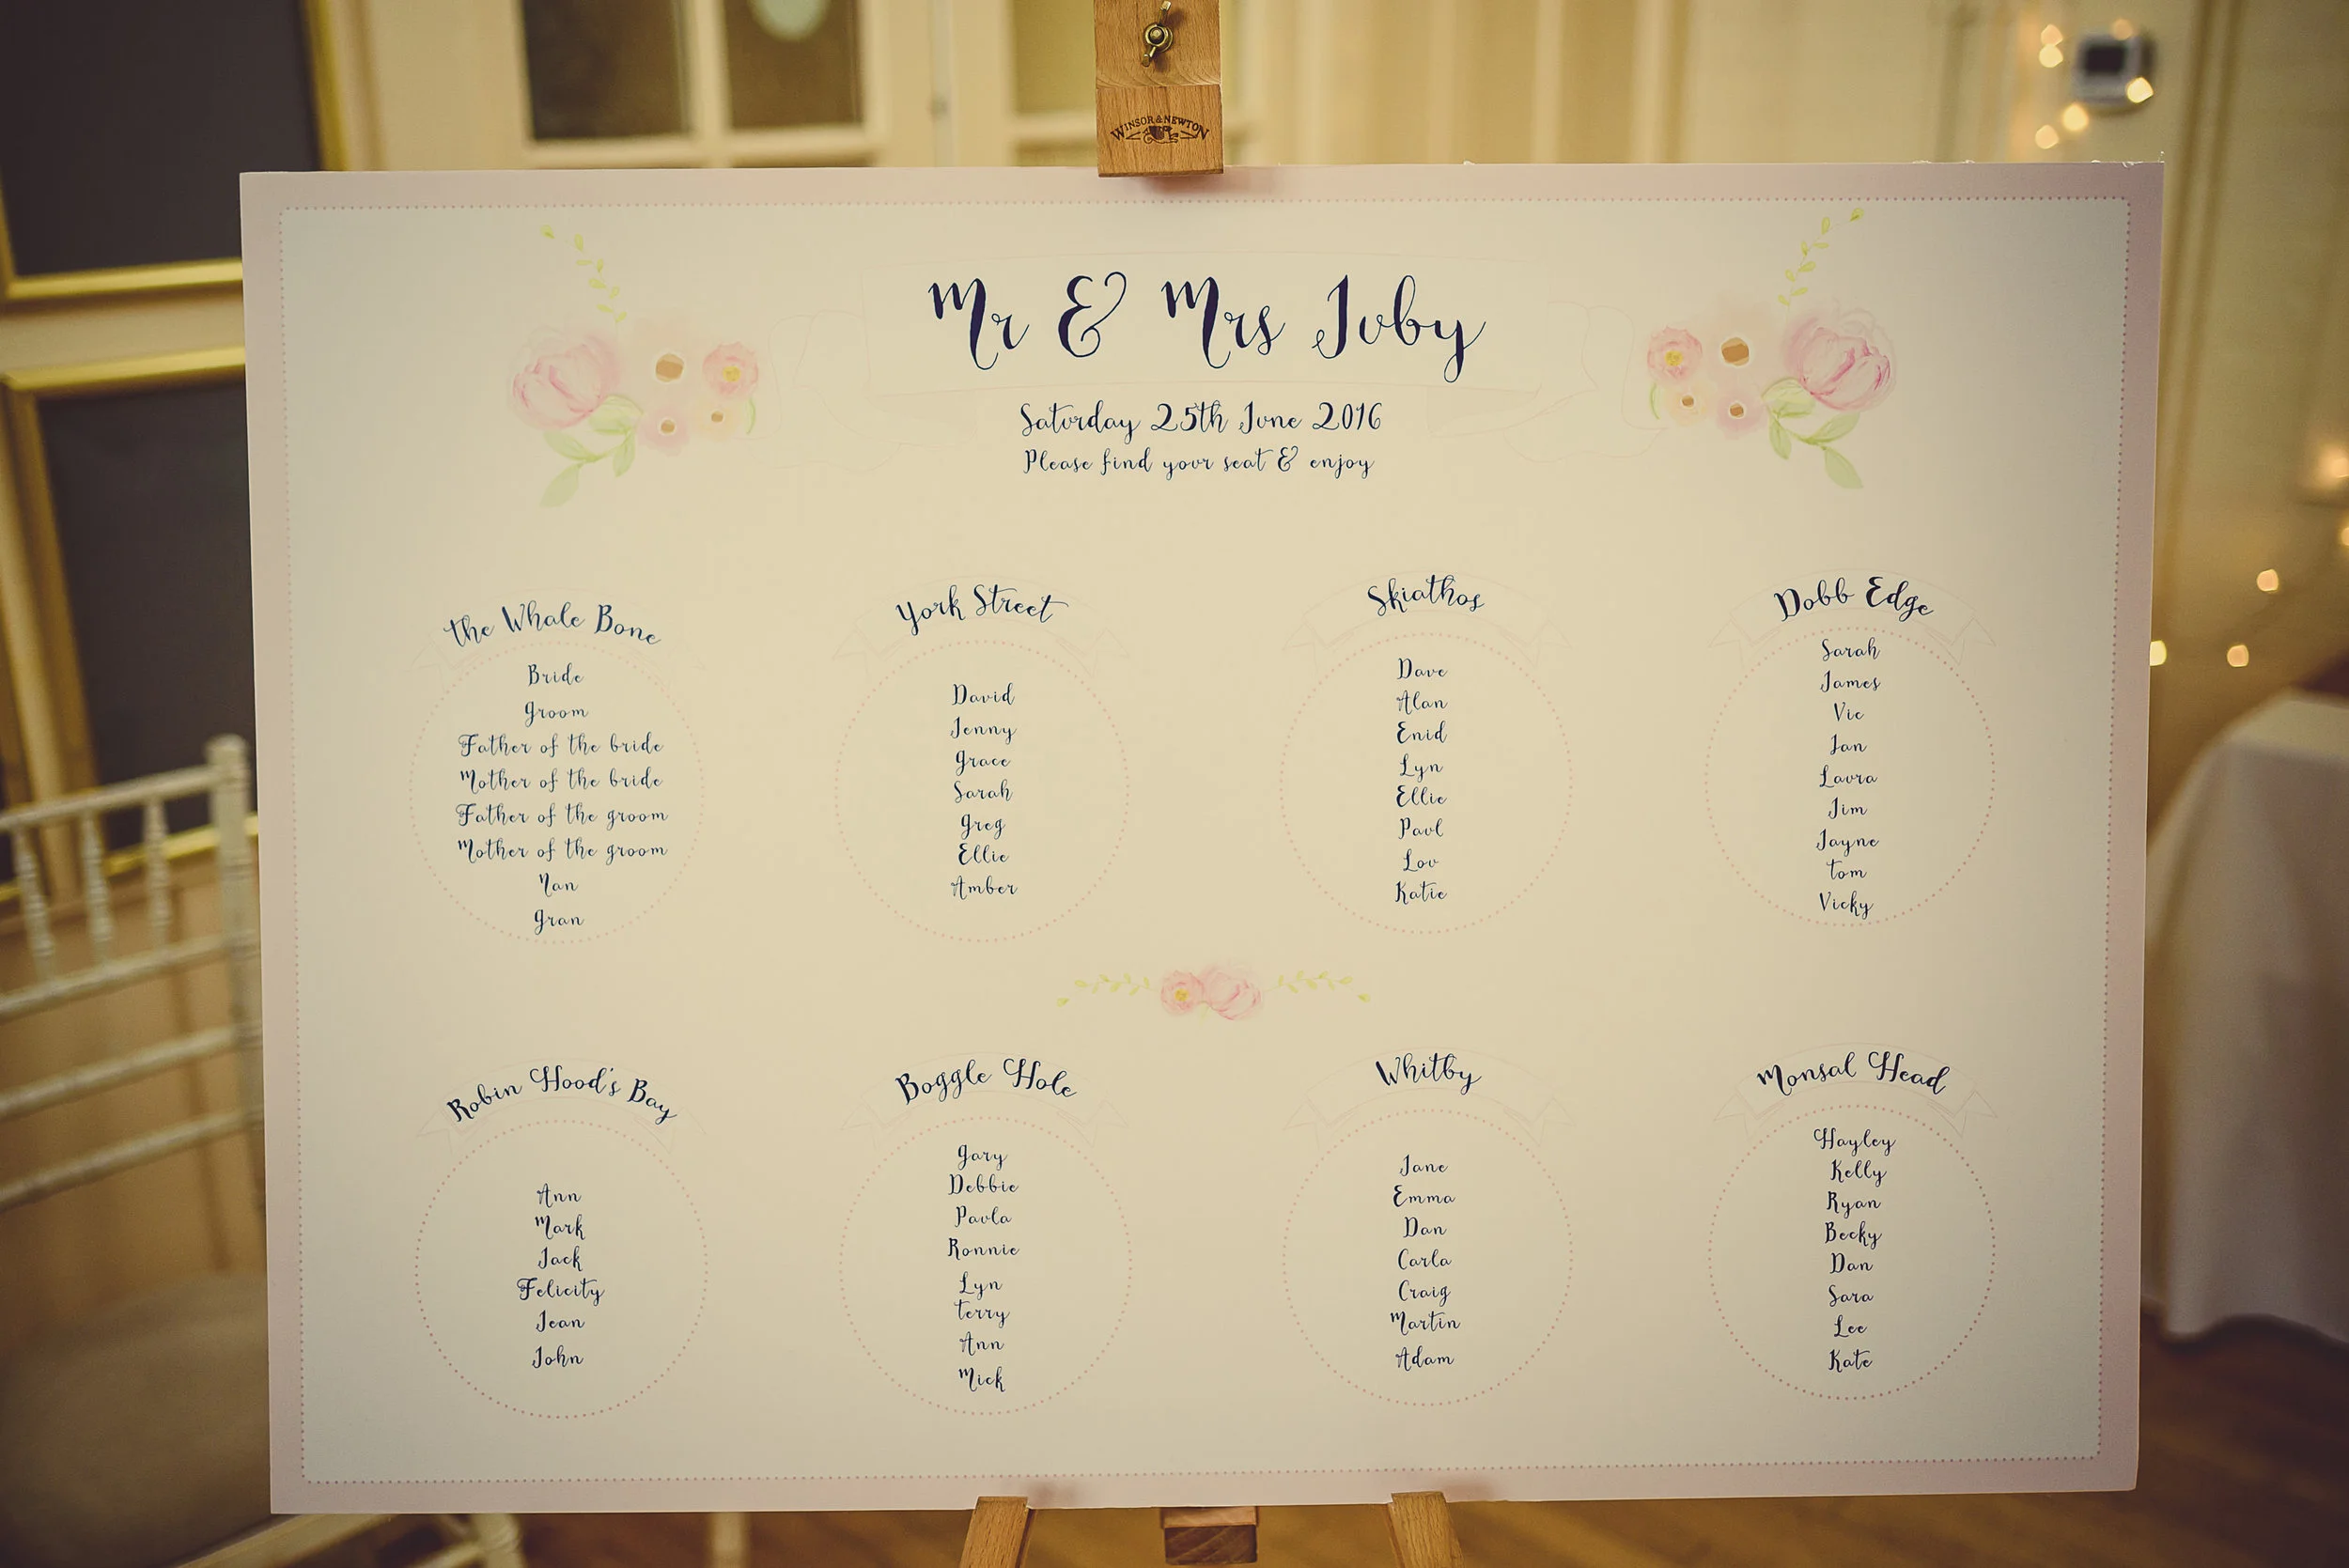 WINSOR & NEWTON
Mr & Mrs Juby
Saturday 25th June 2016
Please find your seat & enjoy
The Whale Bone
Bride
Groom
Father of the bride
Mother of the bride
Father of the groom
Mother of the groom
Nan
Gran
York Street
David
Jenny
Grace
Sarah
Greg
Ellie
Amber
Skiathos
Dave
Alan
Enid
Lyn
Ellie
Paul
Lou
Katie
Dobb Edge
Sarah
James
Vic
Jan
Laura
Jim
Jayne
Tom
Vicky
Robin Hood's Bay
Ann
Mark
Jack
Felicity
Jean
John
Boggle Hole
Gary
Debbie
Paula
Ronnie
Lyn
Terry
Ann
Mick
Whitby
Jane
Emma
Dan
Carla
Craig
Martin
Adam
Monsal Head
Hayley
Kelly
Ryan
Becky
Dan
Sara
Lee
Kate